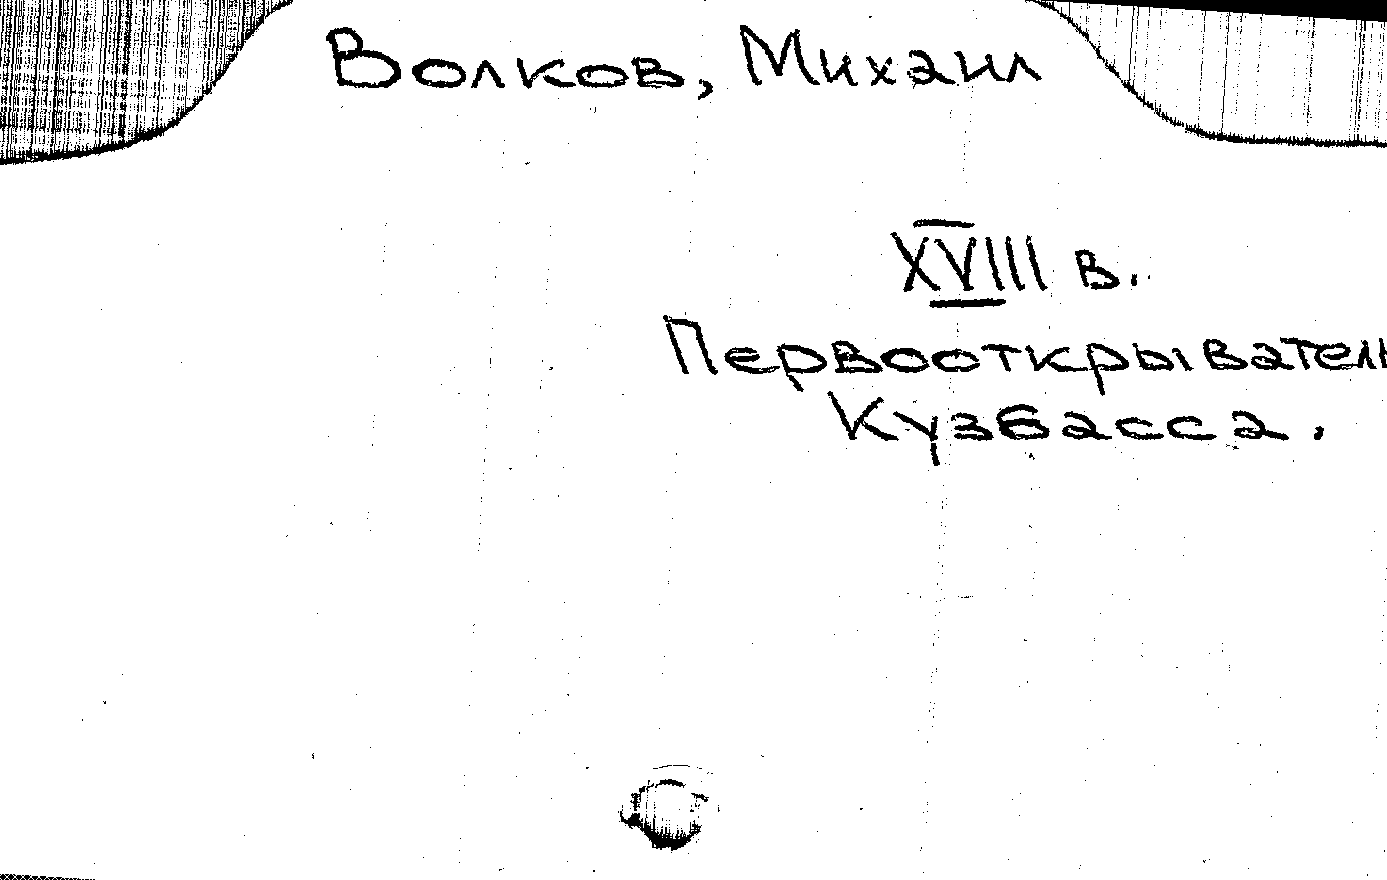 Волков, Михаил
XVIII в.
Первооткрыватель
Кузбасса.